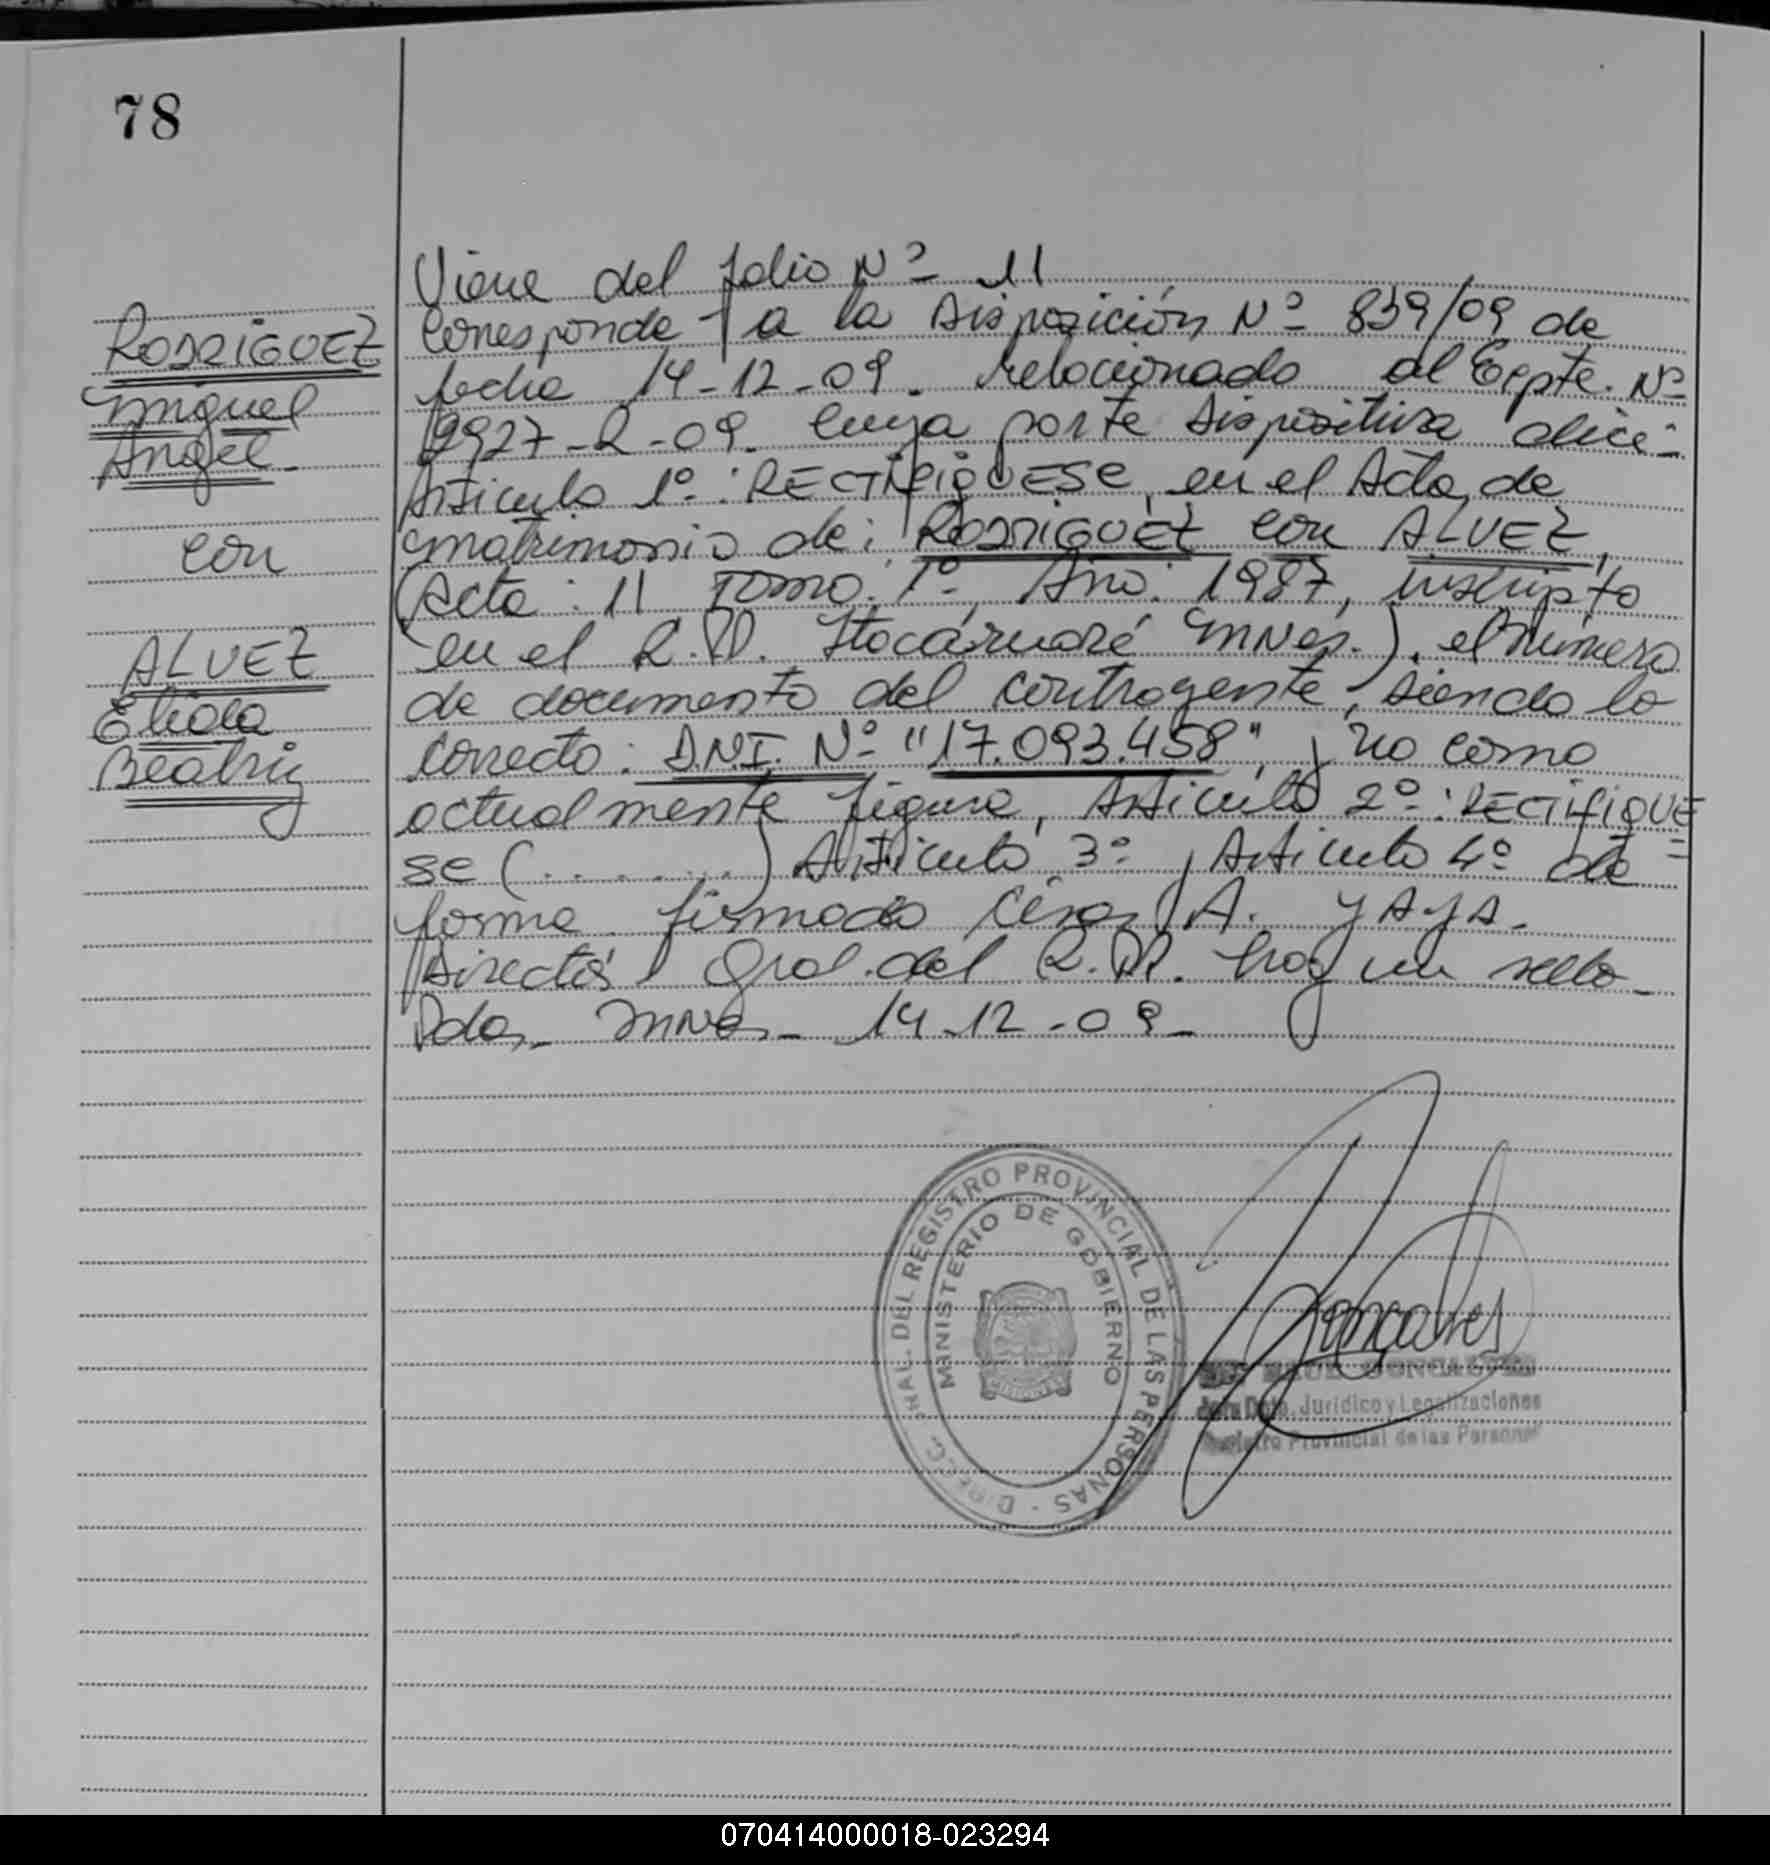 78
RODRIGUEZ
Miguel
Angel -
con
ALVEZ
Elida
Beatriz
Viene del folio Nº 11
Corresponde a la Disposición Nº 839/09 de
fecha 14-12-09. relacionado al Expte. Nº
9927-R-09. Cuya parte Dispositiva dice:
Articulo 1º: RECTIFIQUESE, en el Acta de
matrimonio de: RODRIGUEZ con ALVEZ,
(Acta: 11 Tomo: 1º, Año: 1987, inscripto
en el R.P. Itacaruaré Mnes.). el número
de documento del contrayente, siendo lo
correcto: D.N.I. Nº "17.093.458", y no como
actualmente figura, Articulo 2º: RECTIFIQUE
se (.......) Articulo 3º, Articulo 4º de
forma firmado César A. YAYA.
Director Gral. del R.P. hay un sello -
Pdas, Mnes - 14-12-09 -
DIRECC. GRAL. DEL REGISTRO PROVINCIAL DE LAS PERSONAS -
MINISTERIO DE GOBIERNO
MISIONES
Goncalves
RAUL GONCALVES
Jefe Dpto. Jurídico y Legalizaciones
Registro Provincial de las Personas
070414000018-023294